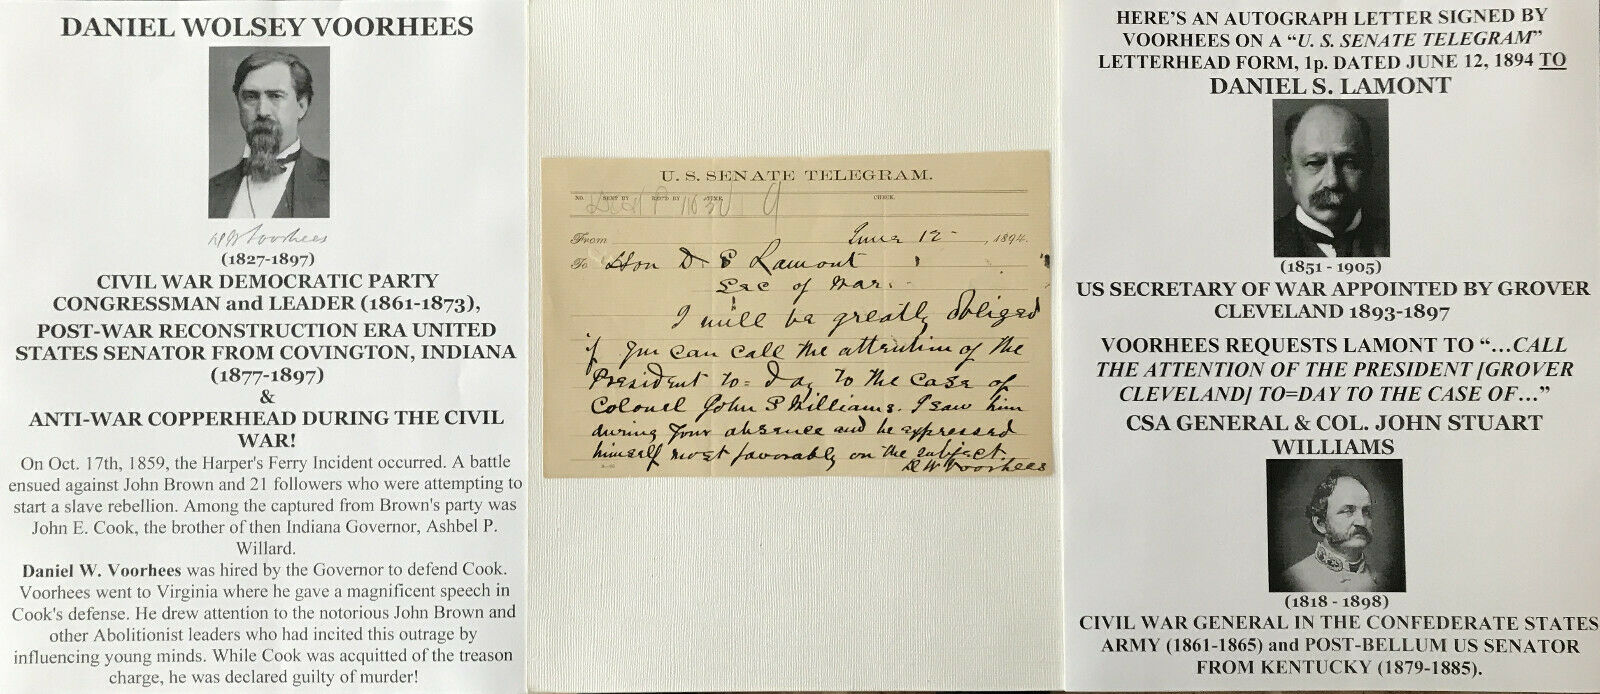 DANIEL WOLSEY VOORHEES
D W Voorhees
(1827-1897)
CIVIL WAR DEMOCRATIC PARTY
CONGRESSMAN and LEADER (1861-1873),
POST-WAR RECONSTRUCTION ERA UNITED
STATES SENATOR FROM COVINGTON, INDIANA
(1877-1897)
&
ANTI-WAR COPPERHEAD DURING THE CIVIL
WAR!
On Oct. 17th, 1859, the Harper's Ferry Incident occurred. A battle
ensued against John Brown and 21 followers who were attempting to
start a slave rebellion. Among the captured from Brown's party was
John E. Cook, the brother of then Indiana Governor, Ashbel P.
Willard.
Daniel W. Voorhees was hired by the Governor to defend Cook.
Voorhees went to Virginia where he gave a magnificent speech in
Cook's defense. He drew attention to the notorious John Brown and
other Abolitionist leaders who had incited this outrage by
influencing young minds. While Cook was acquitted of the treason
charge, he was declared guilty of murder!
U. S. SENATE TELEGRAM.
NO. SENT BY REC'D BY TIME. CHECK.
From June 12 , 1894.
To Hon D. S Lamont
Sec of War.
I will be greatly obliged
if you can call the attention of the
President to=day to the case of
Colonel John S Williams. I saw him
during your absence and he expressed
himself most favorably on the subject.
D W Voorhees
HERE'S AN AUTOGRAPH LETTER SIGNED BY
VOORHEES ON A “U. S. SENATE TELEGRAM”
LETTERHEAD FORM, 1p. DATED JUNE 12, 1894 TO
DANIEL S. LAMONT
(1851 - 1905)
US SECRETARY OF WAR APPOINTED BY GROVER
CLEVELAND 1893-1897
VOORHEES REQUESTS LAMONT TO “…CALL
THE ATTENTION OF THE PRESIDENT [GROVER
CLEVELAND] TO=DAY TO THE CASE OF…”
CSA GENERAL & COL. JOHN STUART
WILLIAMS
(1818 - 1898)
CIVIL WAR GENERAL IN THE CONFEDERATE STATES
ARMY (1861-1865) and POST-BELLUM US SENATOR
FROM KENTUCKY (1879-1885).